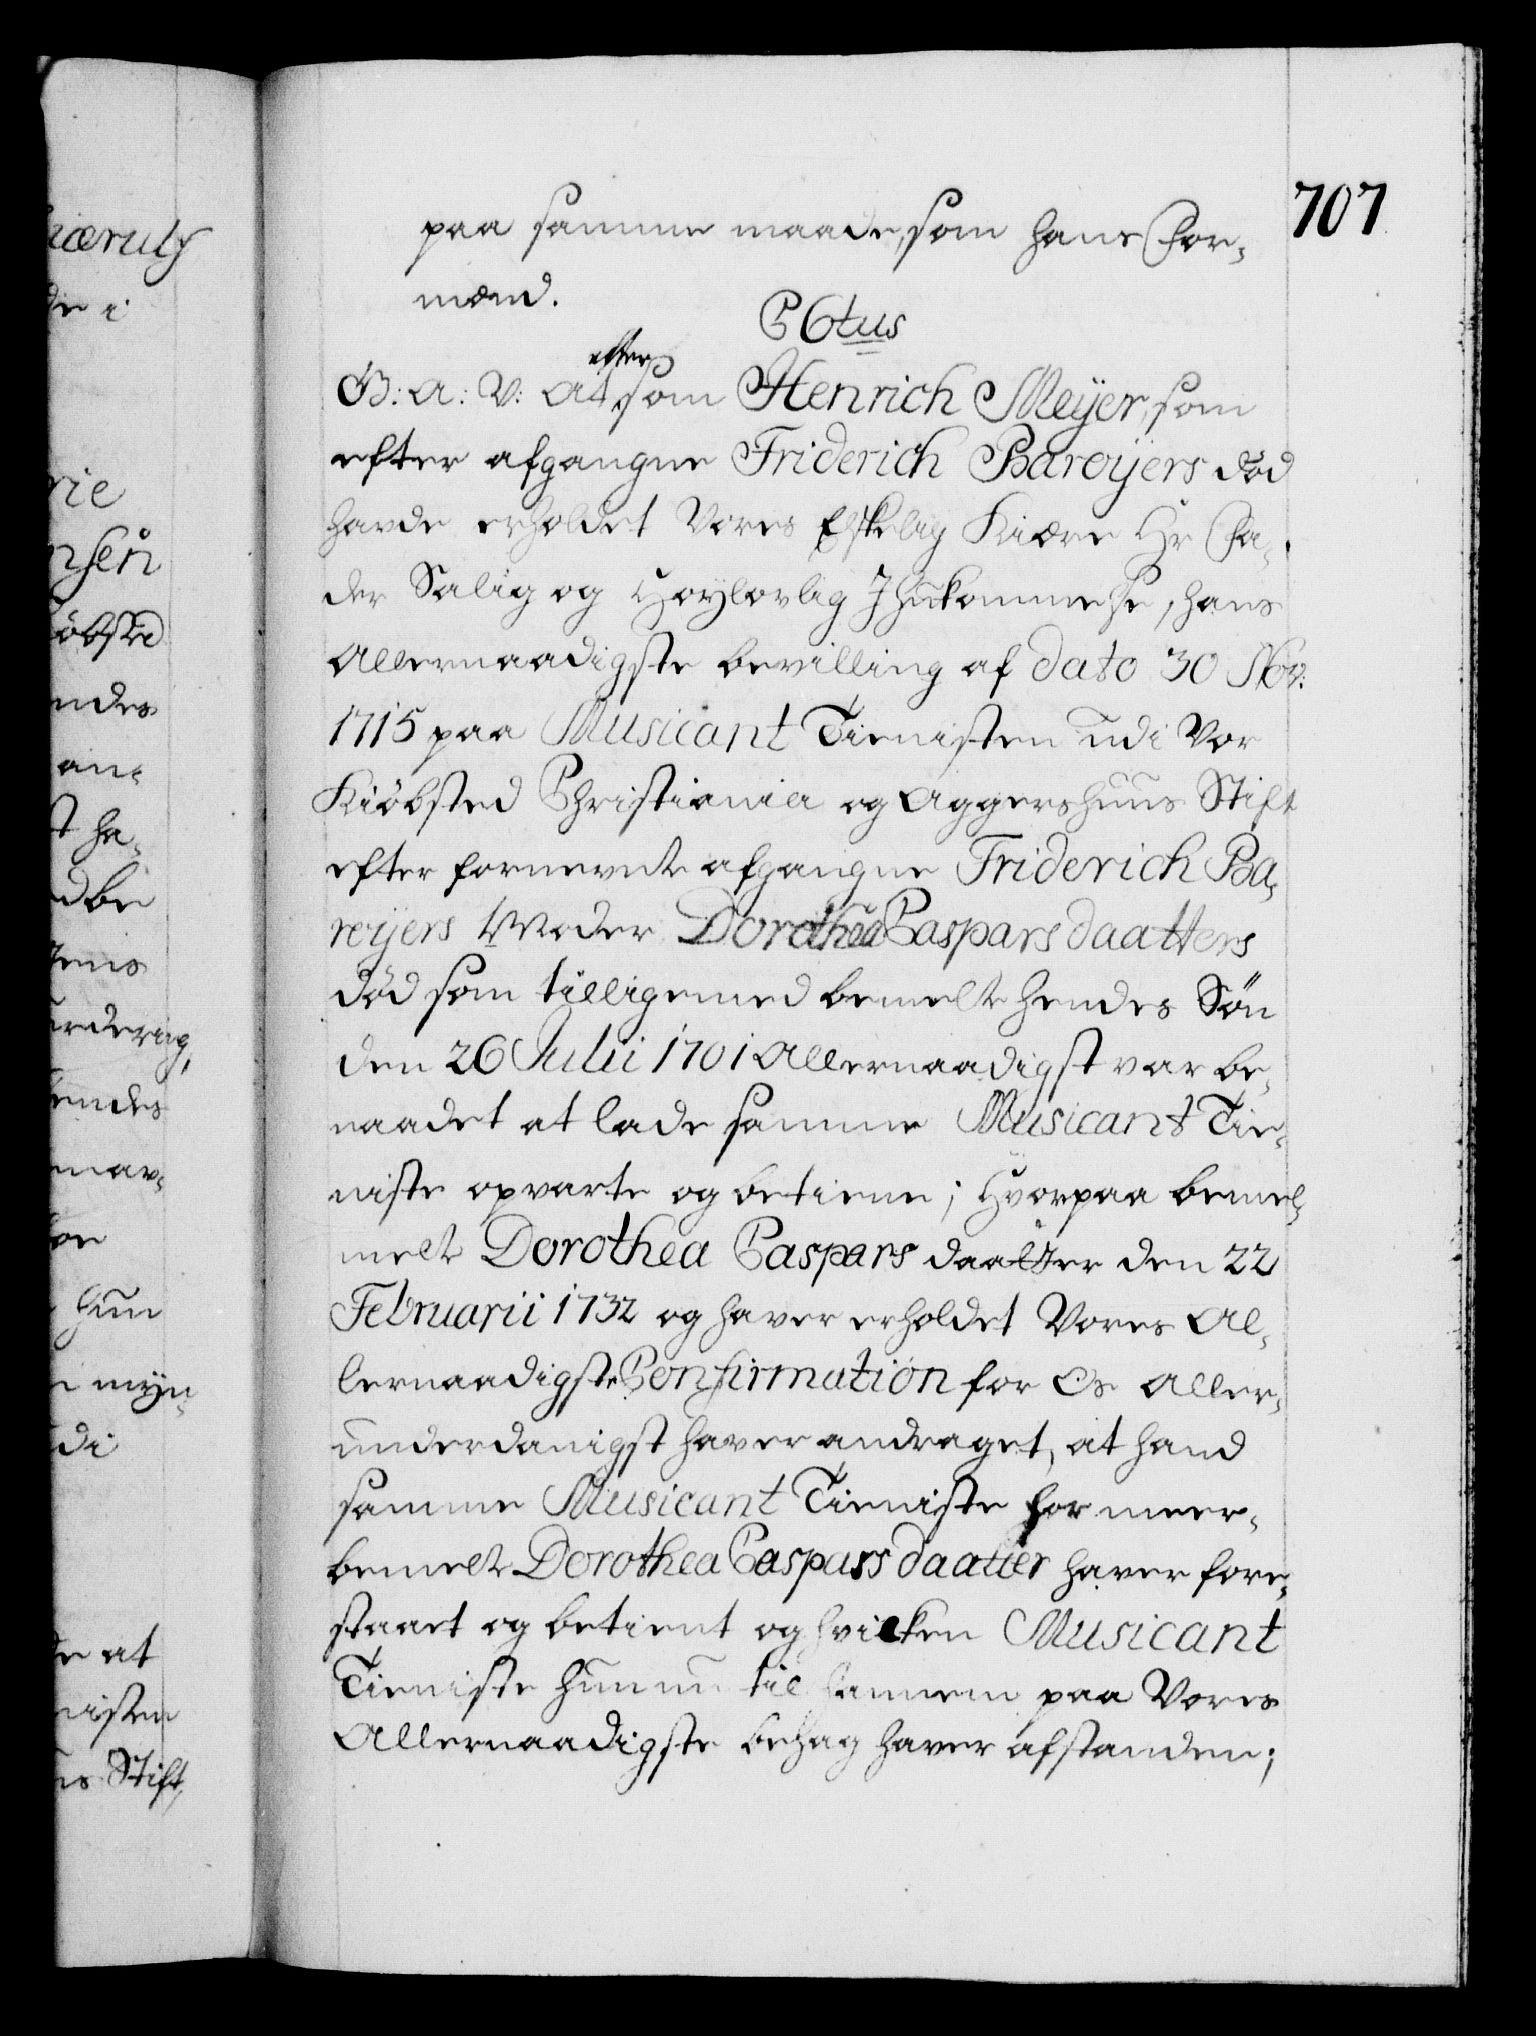 707
paa samme maade, som hans For¬
mænd.
C 6tus
G: A: V: At efter som Henrich Meÿer, som
efter afgangne Friderich Baroÿers død
havde erholdet Vores Elskelig Kiære Hr Fa¬
der Salig og Høylovlig Ihukommelse, hans
Allernaadigste bevilling af dato 30 Nov:
1715 paa Musicant Tienisten udi Vor
Kiøbsted Christiania og Aggershuus Stift
efter fornevnte afgangne Friderich Ba¬
reÿers Moder Dorothea Caspars daatters
død som tilligemed bemelte hendes Søn
den 26 Julii 1701 Allernaadigst var be¬
naadet at lade samme Musicant Tie¬
niste opvarte og betiene; Hvorpaa bemel¬
melt Dorothea Caspars daatter den 22
Februarii 1732 og haver erholdet Vores Al¬
lernaadigste Confirmation for Os Aller¬
underdanigst haver andraget, at hand
samme Musicant Tieniste for meer¬
bemelt Dorothea Caspars daatter haver fore¬
staaet og betient og hvilken Musicant
Tieniste hun nu til hannem paa Vores
Allernaadigste behag haver afstanden;